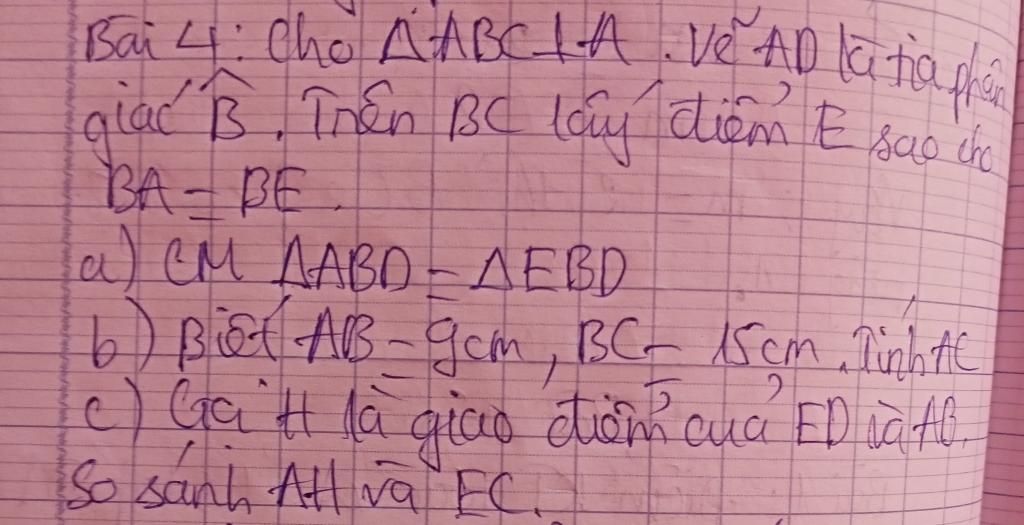 Bài 4: Cho ΔABC ⊥ A. Vẽ AD là tia phân
giác B̂. Trên BC lấy điểm E sao cho
BA = BE.
a) CM ΔABD = ΔEBD
b) Biết AB = 9cm, BC = 15cm. Tính AC
c) Gọi H là giao điểm của ED và AB.
So sánh AH và EC.